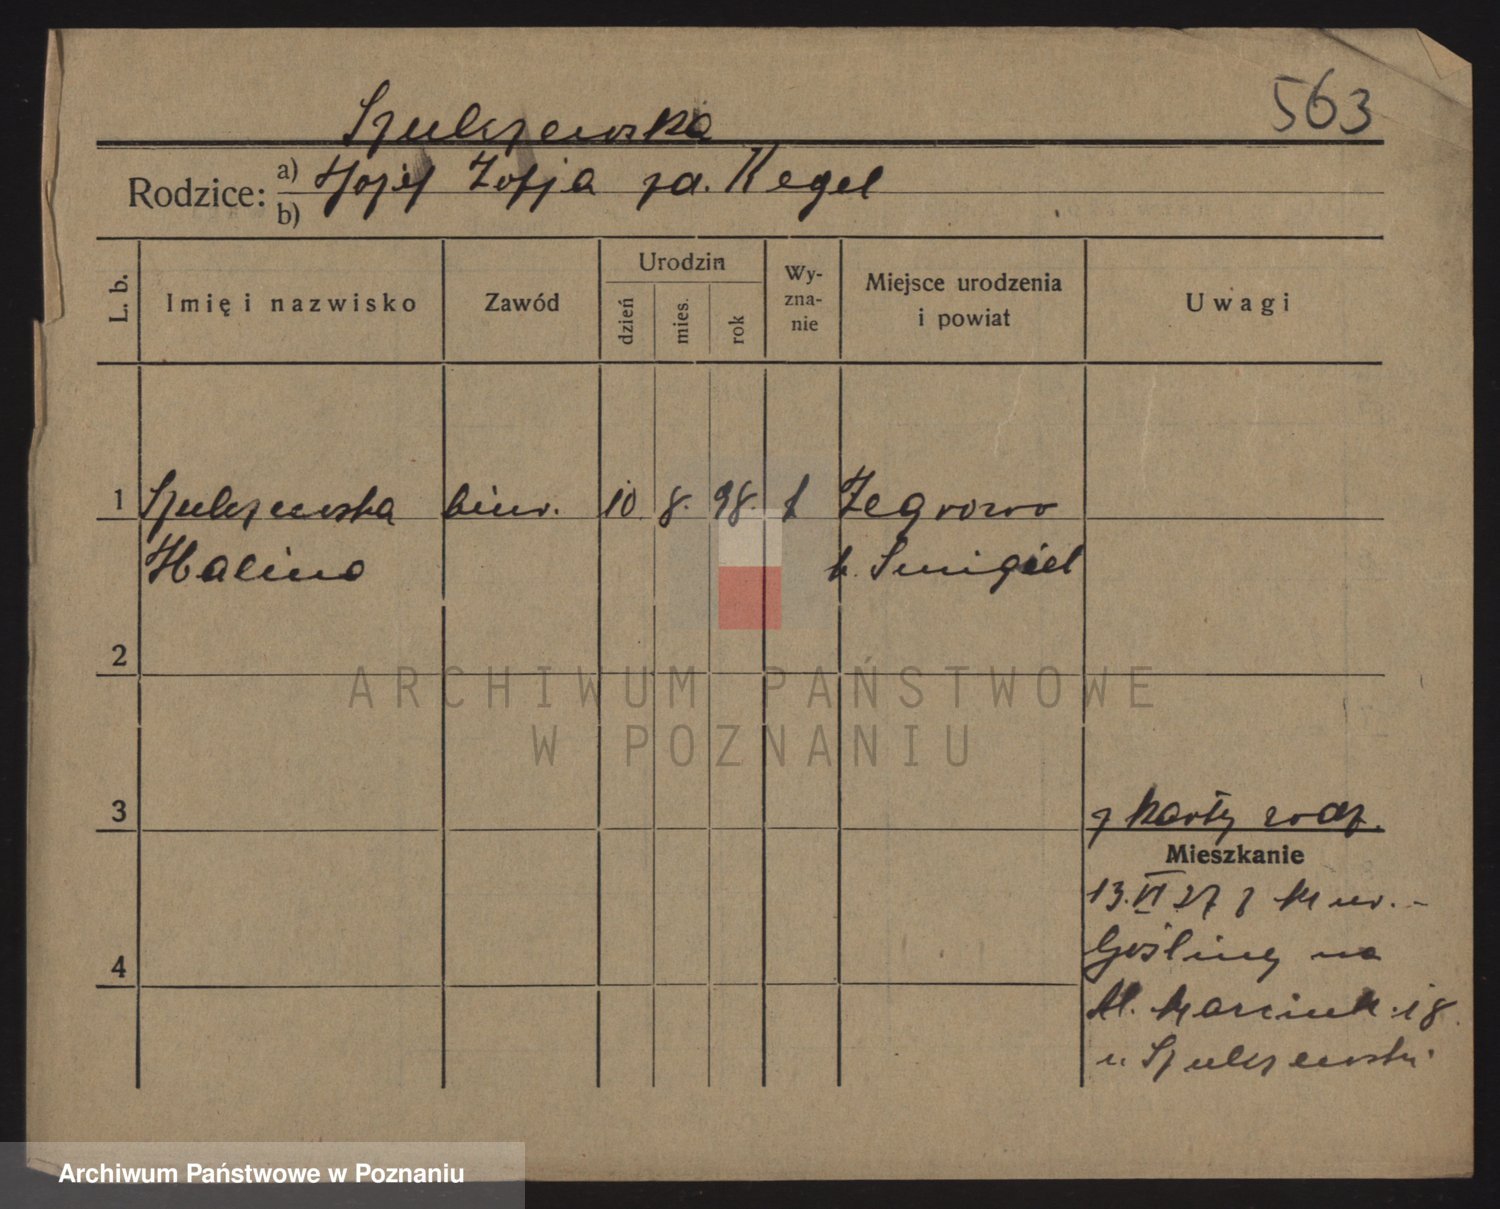 563
Szulczewska
Rodzice: a) Józef Zofja za. Kegel
b)
L. b.
Imię i nazwisko
Zawód
Urodzin
dzień
mies.
rok
Wy-
zna-
nie
Miejsce urodzenia
i powiat
Uwagi
1 Szulczewska biur. 10. 8. 98. Zegrowo
Halina b. Smigiel
2
ARCHIWUM PAŃSTWOWE
W POZNANIU
3 z karty rodz.
Mieszkanie
13.VI 27 z Mur.-
Gośliny na
4
Marcink. 18.
u Szulczewski
Archiwum Państwowe w Poznaniu